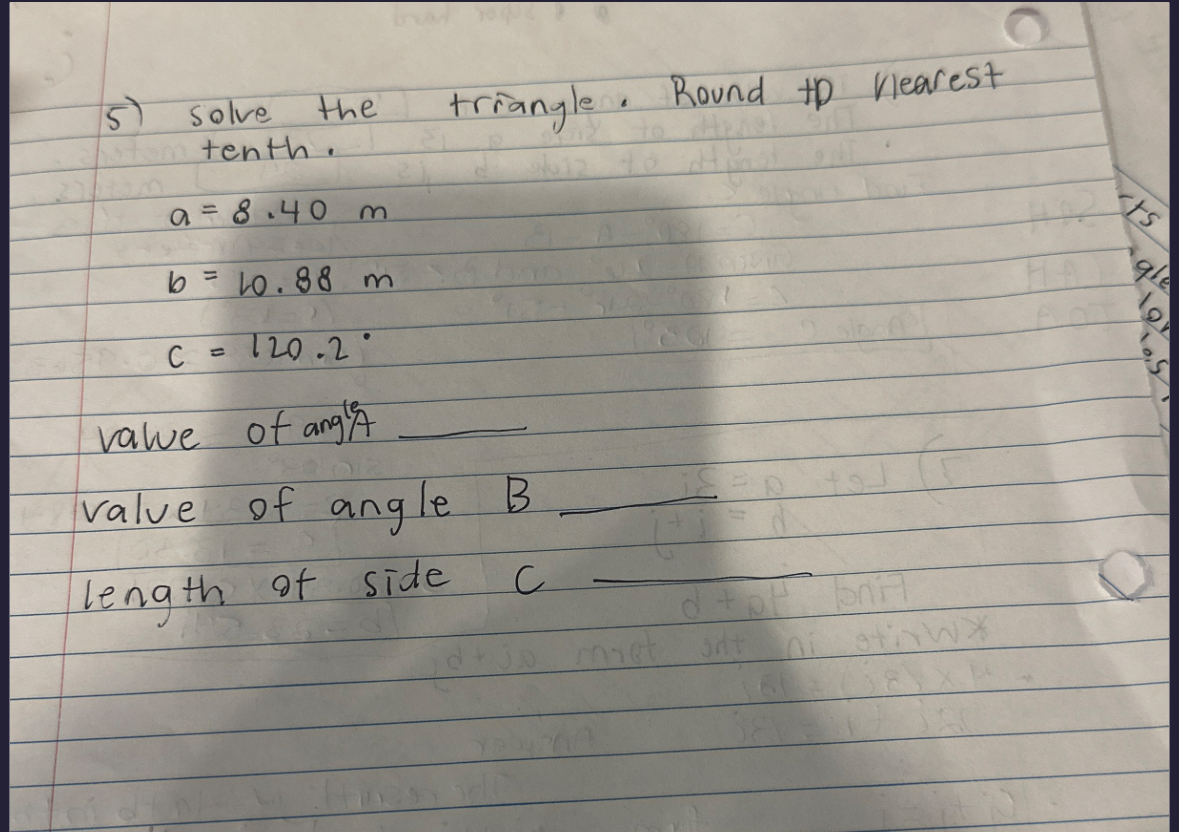 5) solve the triangle. Round to nearest
tenth.
a = 8.40 m
b = 10.88 m
c = 120.2°
value of angle A
value of angle B
length of side C
its